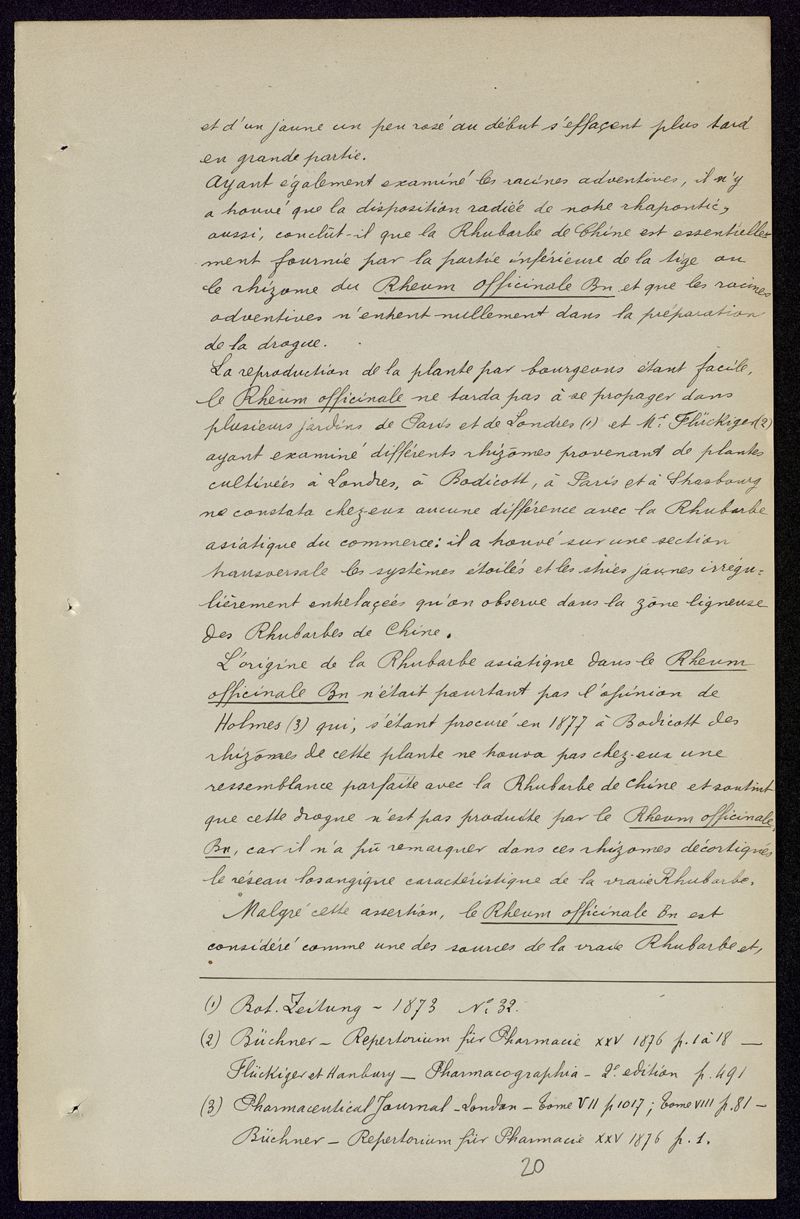 et d'un jaune un peu rosé du début s'effaçent plus tard
en grande partie.
Ayant également examiné les racines adventives, il n'y
a trouvé que la disposition radiée de notre rhapontic,
aussi, conclût-il que la Rhubarbe de Chine est essentielle-
ment fournie par la partie inférieure de la tige ou
le rhizome du Rheum officinale Bn et que les racines
adventives n'entrent nullement dans la préparation
de la drogue.
La reproduction de la plante par bourgeons étant facile,
le Rheum officinale ne tarda pas à se propager dans
plusieurs jardins de Paris et de Londres (1) et Mr. Flückiger (2)
ayant examiné différents rhizômes provenant de plantes
cultivées à Londres, à Bodicott, à Paris et à Strasbourg
ne constata chez-eux aucune différence avec la Rhubarbe
asiatique du commerce: il a trouvé sur une section
transversale les systèmes étoilés et les stries jaunes irrégu=
lièrement entrelaçeés qu'on observe dans la zône ligneuse
des Rhubarbes de Chine.
L'origine de la Rhubarbe asiatique dans le Rheum
officinale Bn n'était pourtant pas l'opinion de
Holmes (3) qui, s'étant procuré en 1877 à Bodicott des
rhizômes de cette plante ne trouva pas chez-eux une
ressemblance parfaite avec la Rhubarbe de Chine et soutint
que cette drogue n'est pas produite par le Rheum officinale
Bn, car il n'a pû remarquer dans ces rhizomes décortiqués
le réseau losangique caractéristique de la vraie Rhubarbe.
Malgré cette assertion, le Rheum officinale Bn est
considéré comme une des sources de la vraie Rhubarbe et,
(1) Bot. Zeitung - 1873 No. 32.
(2) Büchner - Repertorium für Pharmacie XXV 1876 p. 1 à 18 —
Flückiger et Hanbury — Pharmacographia - 2e. edition p. 491
(3) Pharmaceutical Journal - London - Tome VII p 1017; Tome VIII p. 81 -
Büchner - Repertorium für Pharmacie XXV 1876 p. 1.
20